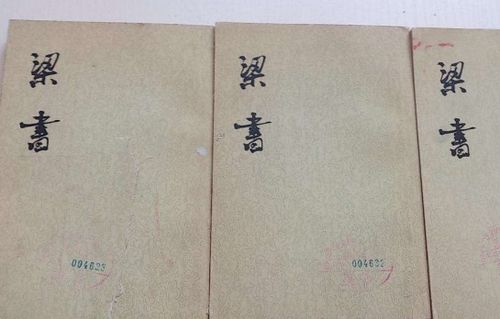 梁書
004623
梁書
004632
梁書